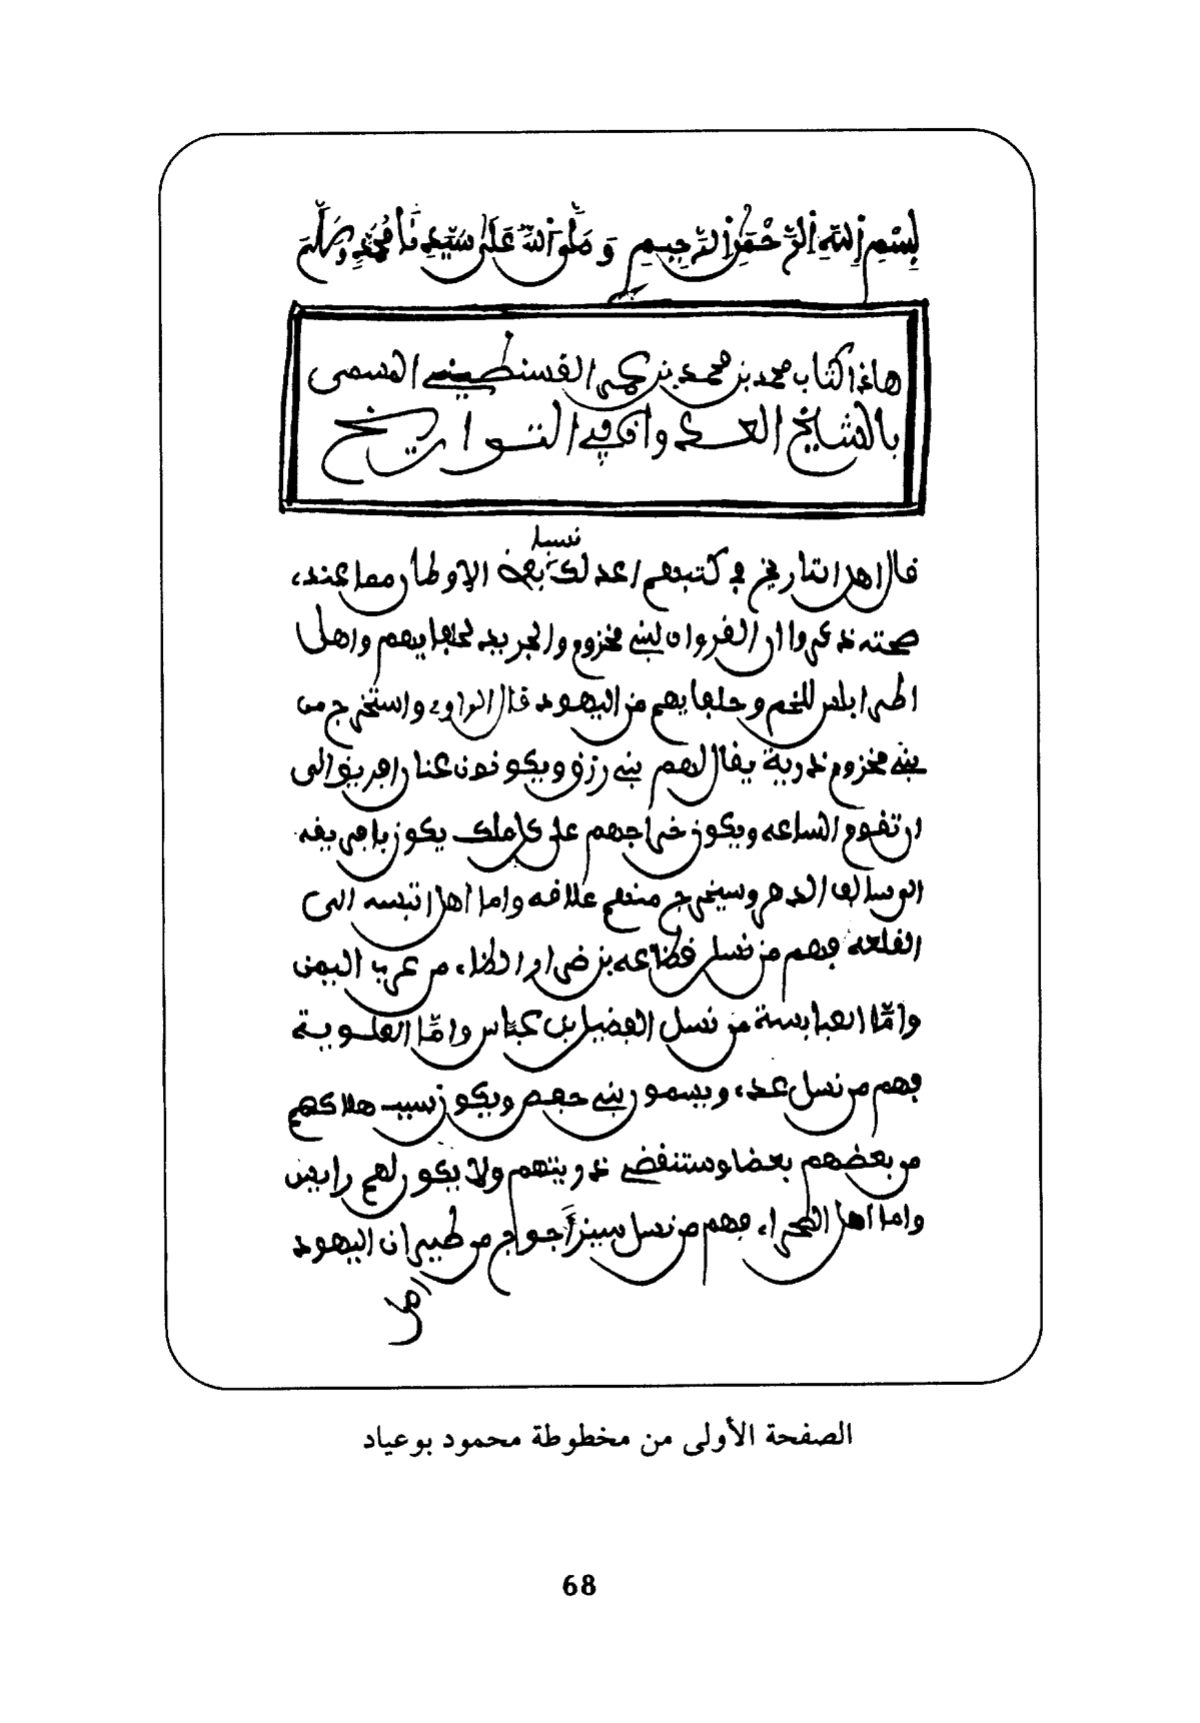 بِسْمِ اِللَّهِ اِلرَّحْمَنِ اِلرَّحِيمِ وَصَلَّى اَللَّهُ عَلَى سَيِّدِنَا مُحَمَّدٍ وَسَلَّمَ
هاذا الكتاب محمد بن محمد بن القسنطيني المسمى
بالمشايخ العدواني في التواريخ
نسبا
قال اهل التاريخ في كتبهم الاوطان مما عند
صحته ذكروا ان القروان لبني مخزوم والجريد لحلفايهم واهل
اطرابلس للخم وحلفايهم من اليهود قال الراوي واستخرج من
بني مخزوم ذرية يقال لهم بني رزق ويكونون افريق الى
ان تقوم الساعه ويكون خراجهم على كل ملك يكون بافريقه
الى سالف الدهر وسيخرج منهم علاقه واما اهل تبسه الى
القلعه فهم من نسل قضاعه بن ضرار من عرب اليمن
وامّا العبابسة من نسل الفضيل بن عبّاس وامّا العلوية
فهم من نسل ويسمون بني حفص ويكون سبب هلاكهم
من بعضهم بعضا وستنقضي ذريتهم ولا يكون لهم رايس
واما اهل الصحراء فهم من نسل من طبران اليهود
الصفحة الأولى من مخطوطة محمود بوعياد
68